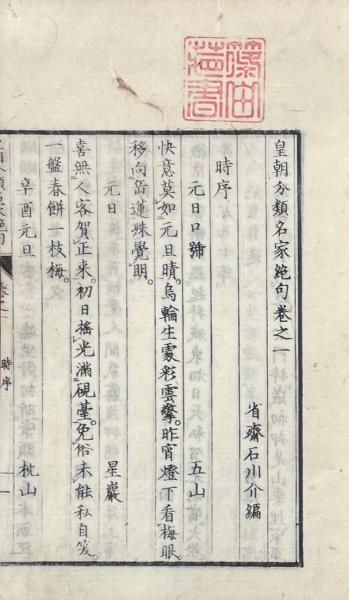 皇朝分類名家絶句卷之一
省齋石川介編
時序
元日口號 五山
快意莫如元旦晴。烏輪生處彩雲擎。昨宵燈下看梅眼。
移向岳蓮殊覺明。
元日 星巖
喜無人客賀正來。初日搖光滿硯臺。免俗未能私自笑。
一盤春餅一枝梅。
辛酉元旦 枕山
時序 一